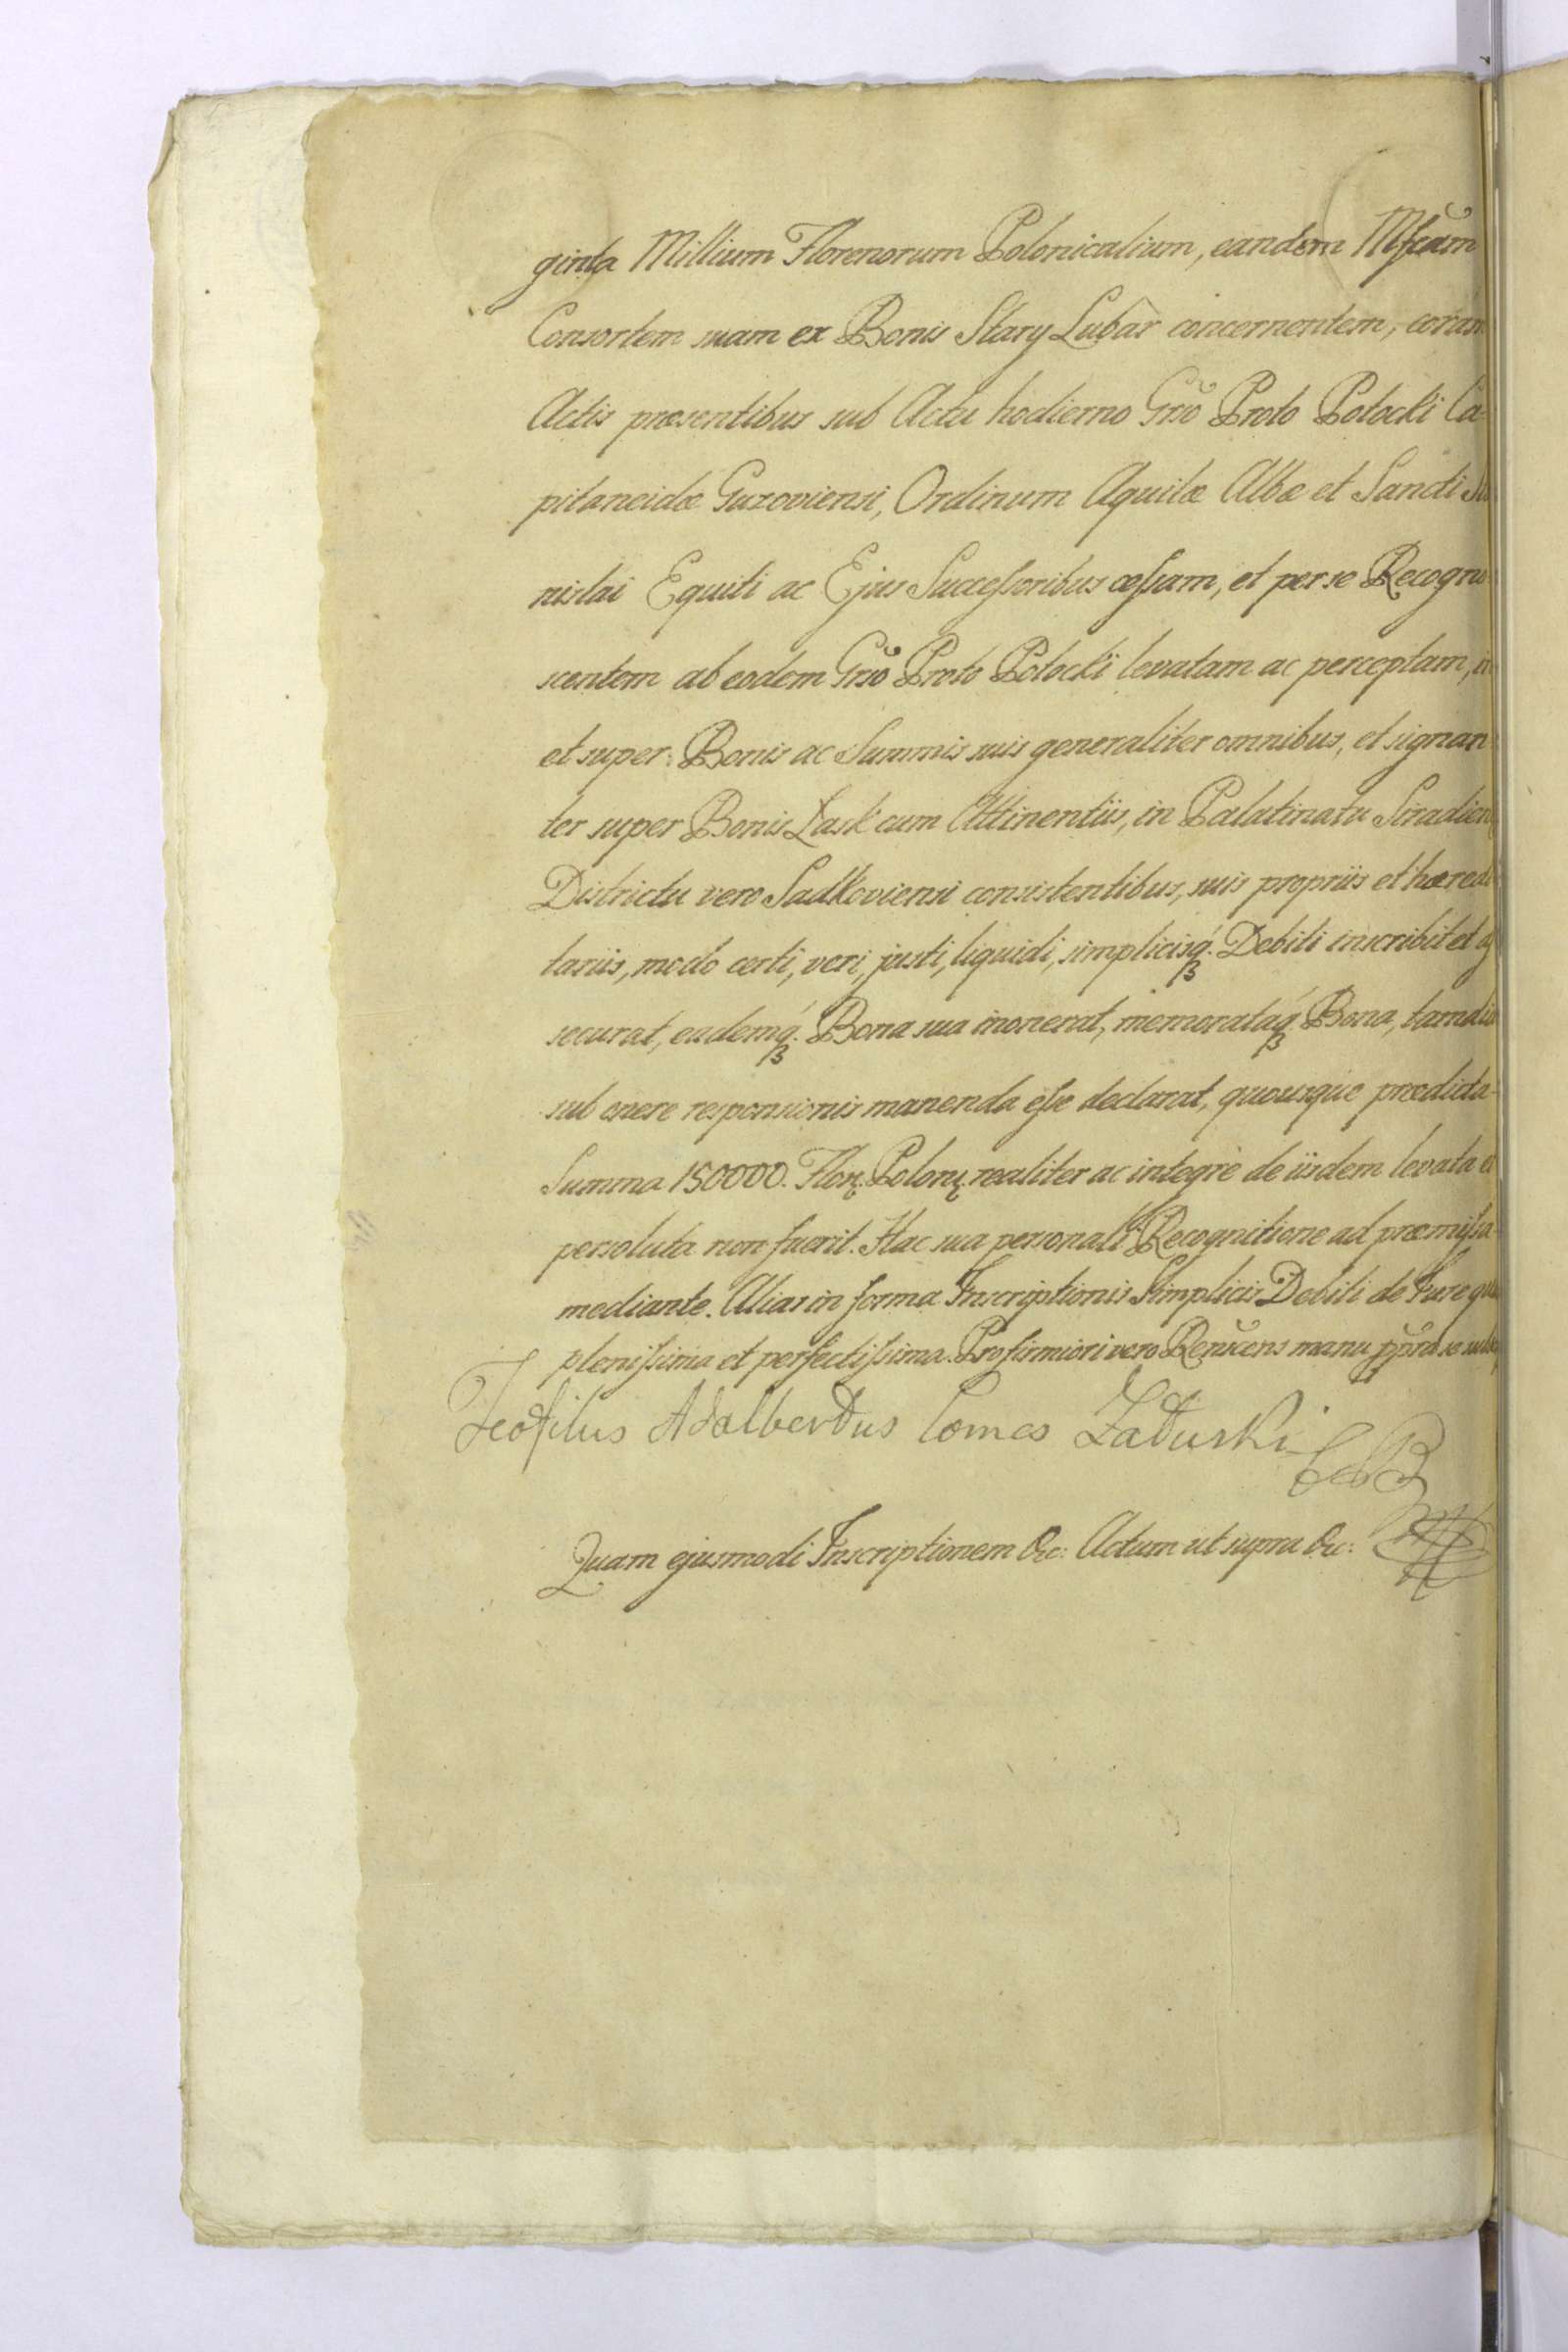 ginta Millium Florenorum Polonicalium, eandem Mfcam
Consortem suam ex Bonis Stary Lubar concernentem, coram
Actis præsentibus sub Actu hodierno Grso Proto Potocki Ca-
pitaneidæ Guzoviensi, Ordinum Aquilæ Albæ et Sancti
nislai Equiti ac Ejus Succeſsoribus ceſsam, et per se Recogno-
scentem ab eodem Grso Proto Potocki levatam ac perceptam, in
et super: Bonis ac Summis suis generaliter omnibus, et signan-
ter super Bonis Łask cum Attinentiis, in Palatinatu Siradien
Districtu vero Sadkoviensi consistentibus, suis propriis et hæredi
tariis, modo certi, veri, justi, liquidi, simplicisq́. Debiti inscribit et
securat, eademq́. Bona sua inonerat, memorataq́ Bona, tamdiu
sub onere responsionis manenda eſse declarat, quousque prædicta
Summa 150000. Flor. Polon. realiter ac integrè de iisdem levata et
persoluta non fuerit. Hac sua personali Recognitione ad præmiſsa
mediante. Alias in forma Inscriptionis Simplicis Debiti de Jure
pleniſsima et perfectiſsima. Pro firmiori vero Rencens manu ppria se
Teofilus Adalbertus Comes Załuski
Quam ejusmodi Inscriptionem &c: Actum ut supra &c: